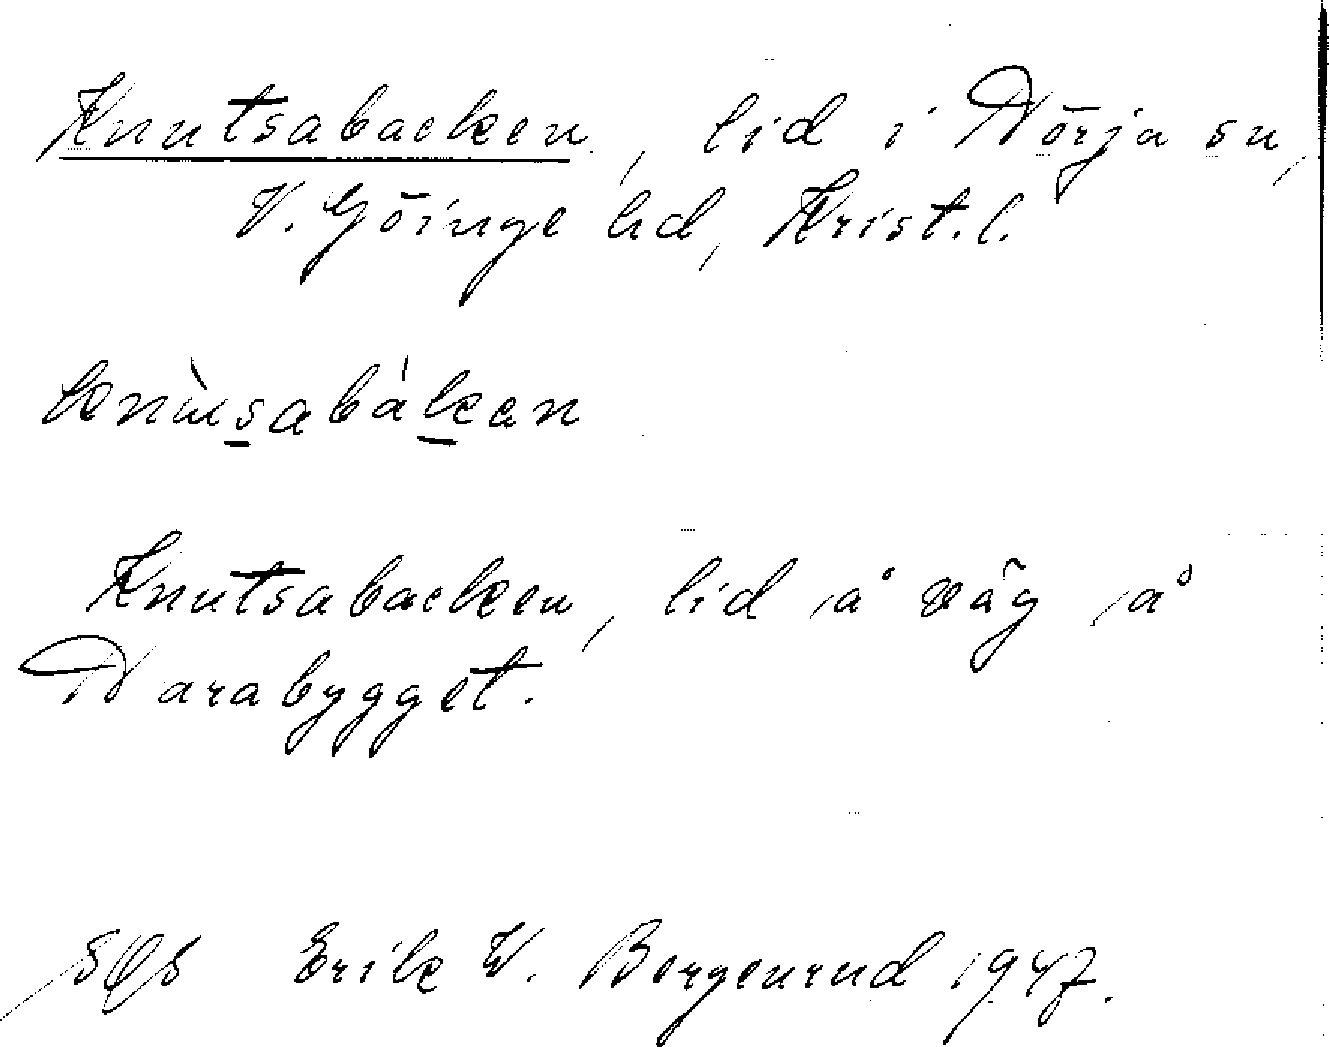 Knutsabacken, lid i Nörja sn,
V. Göinge hd, Krist. l.
knùsabákan
Knutsabacken, lid å väg å
Narabygget.
Erik W. Bergenrud 1947.